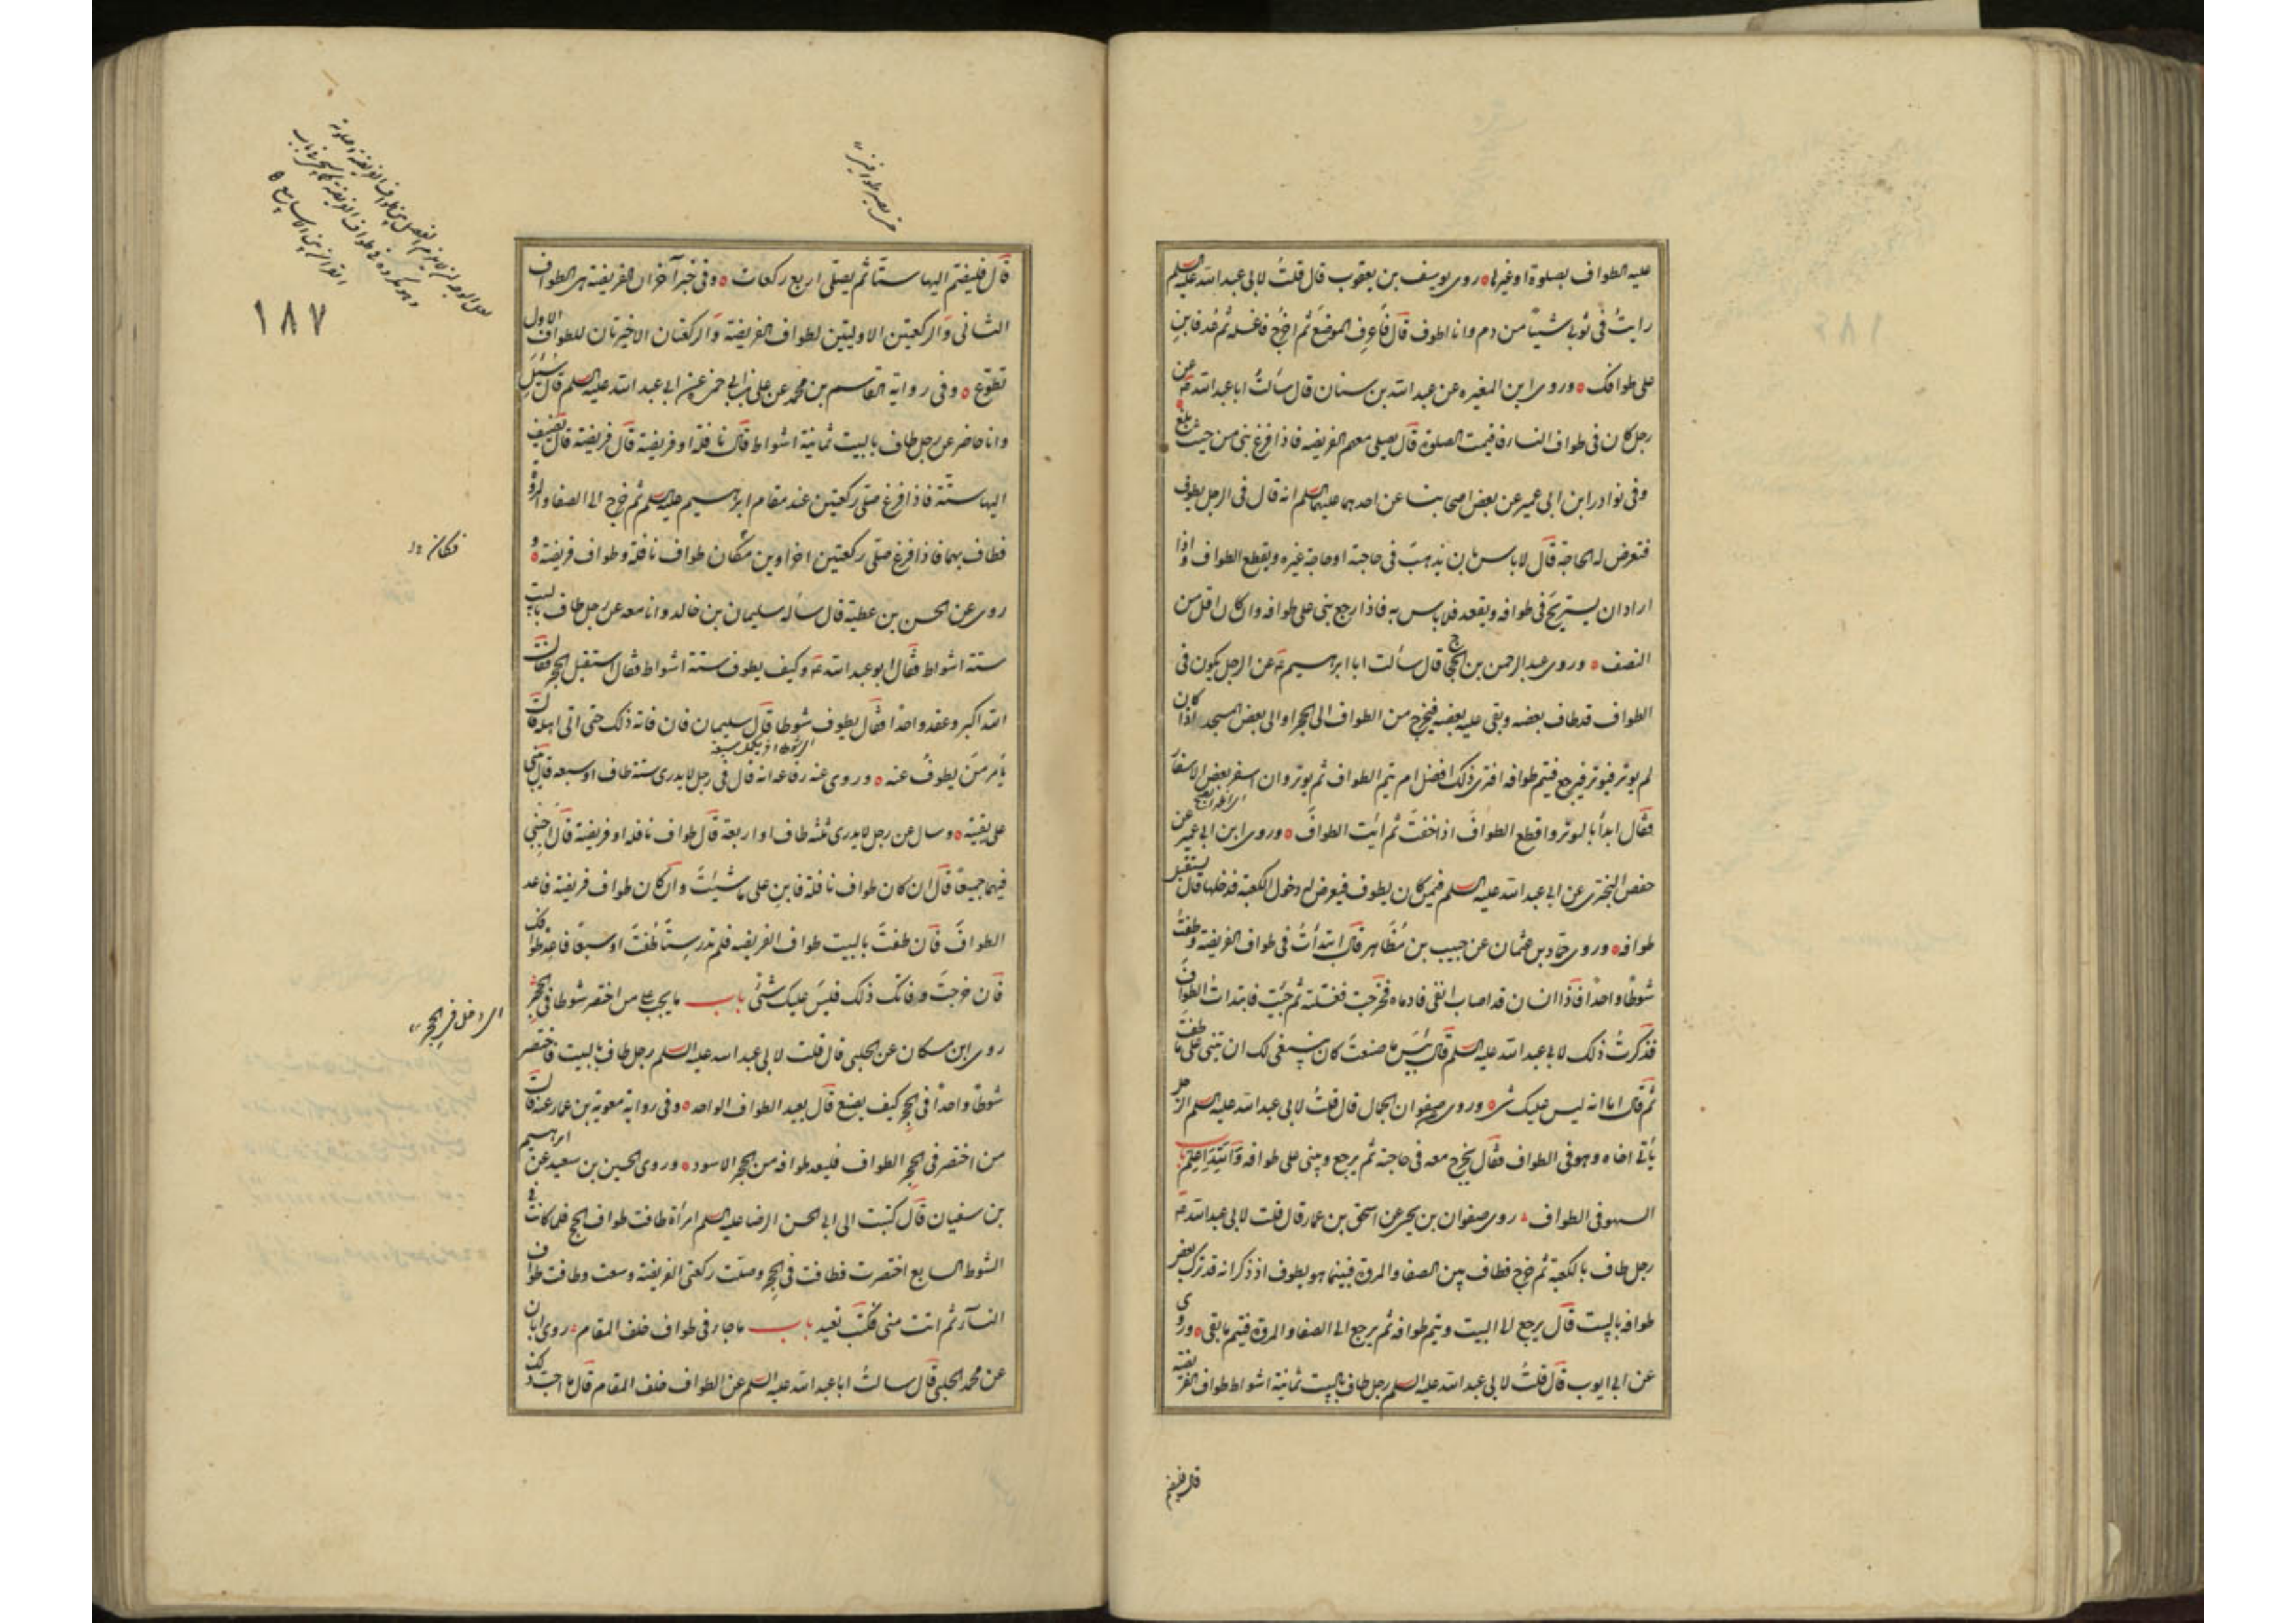 عليه الطواف بصلوة او غيرها روى يوسف بن يعقوب قال قلتُ لابى عبد الله عليه السلم
رايتُ فى ثوبى شيئاً من دم وانا اطوف قال فاعرِف الموضعَ ثم اخرُج فاغسله ثم عُد فابنِ
على طوافك وروى ابن المغيره عن عبد الله بن سنان قال سألتُ ابا عبد الله عه عن
رجل كان فى طواف النساء فاقيمت الصلوة قال يصلى معهم الفريضه فاذا فرغ بنى من حيث بلغ
وفى نوادر ابن ابى عمير عن بعض اصحابنا عن احدهما عليهما السلم انه قال فى الرجل يطوف
فتعرض له الحاجة قال لا باس بان يذهبَ فى حاجته او حاجة غيره ويقطع الطواف واذا
اراد ان يستريحَ فى طوافه ويقعد فلا باس به فاذا رجع بنى على طوافه وان كان اقل من
النصف وروى عبد الرحمن بن الحجاج قال سألت ابا ابرهيم عه عن الرجل يكون فى
الطواف قد طاف بعضه وبقى عليه بعضه فيخرج من الطواف الى الحجر او الى بعض المسجد اذا كان
لم يوتر فيوتر فيرجع فيتم طوافه افترى ذلك افضل ام يتم الطواف ثم يوتر وان اسفر بعض الاسفار
فقال ابدأ بالوتر واقطع الطوافَ اذا خفتَ ثم ائت الطوافَ وروى ابن ابى عمير عن
حفص البخترى عن ابى عبد الله عليه السلم فيمن كان يطوف فيعرض له دخول الكعبة فدخلها قال يستقبل
طوافه وروى حماد بن عثمان عن حبيب بن مُظاهر قال ابتدأتُ فى طواف الفريضة وطفتُ
شوطًا واحدًا فاذا انسان قد اصاب انفى فادماه فخرجت فغسلته ثم جئت فابتدات الطوافَ
فذكرتُ ذلك لابى عبد الله عليه السلم قال بئسَ ما صنعتَ كان ينبغى لك ان تبنى على ما طفتَ
ثم قال اما انه ليس عليك شى وروى صفوان الجمال قال قلتُ لابى عبد الله عليه السلم الرجل
يأتى اخاه وهو فى الطواف فقال يخرج معه فى حاجته ثم يرجع ويبنى على طوافه باب
السهو فى الطواف روى صفوان بن يحيى عن اسحق بن عمار قال قلت لابى عبد الله عه
رجل طاف بالكعبة ثم خرج فطاف بين الصفا والمروة فبينما هو يطوف اذ ذكر انه قد ترك بعض
طوافه بالبيت قال يرجع الى البيت ويتم طوافه ثم يرجع الى الصفا والمروة فيتم ما بقى وروى
عن ابى ايوب قال قلتُ لابى عبد الله عليه السلم رجل طاف بالبيت ثمانية اشواط طواف الفريضة
قال فليضم
١٨٧
قال فليضم اليها ستًا ثم يصلى اربع ركعات وفى خبر آخر ان الفريضة هى الطواف
الثانى والركعتين الاوليتين لطواف الفريضة والركعتان الاخيرتان للطواف الاول
تطوّع وفى رواية القاسم بن محمد عن على بن ابى حمزة عن ابى عبد الله عليه السلم قال سُئِلَ
وانا حاضر عن رجل طاف بالبيت ثمانية اشواط قال نافلة او فريضة قال فريضة قال يضيف
اليها ستة فاذا فرغ صلى ركعتين عند مقام ابرهيم عليه السلم ثم خرج الى الصفا والمروة
فطاف بهما فاذا فرغ صلى ركعتين اخراوين فكان طواف نافلة وطواف فريضة و
فكان
روى عن الحسن بن عطية قال سأله سليمان بن خالد وانا معه عن رجل طاف بالبيت
ستة اشواط فقال ابو عبد الله عه وكيف يطوف ستة اشواط فقال استقبل الحجر فقال
الله اكبر وعقد واحدًا فقال يطوف شوطا قال سليمان فان فاته ذلك حتى اتى اهله قال
يأمر من يطوفُ عنه وروى عنه رفاعه انه قال فى رجل لا يدرى ستة طاف او سبعه قال يبنى
على يقينه وسال عن رجل لا يدرى ثلثة طاف او اربعة قال طواف نافلة او فريضة قال اجبنى
فيهما جميعًا قال ان كان طواف نافلة فابن على ما شئتَ وان كان طواف فريضة فاعد
الطوافَ فان طفتَ بالبيت طواف الفريضه فلم تدر ستًّا طُفتَ او سبعًا فاعِد طوافك
فان خرجتَ وفاتك ذلك فليسَ عليك شئٌ باب ما يجب على من اختصر شوطا فى الحجر
اى دخل فى الحجر
روى ابن مسكان عن الحلبى قال قلت لابى عبد الله عليه السلم رجل طاف بالبيت فاختصر
شوطًا واحدًا فى الحجر كيف يصنع قال يعيد الطواف الواحد وفى رواية معوية بن عمار عنه قال
من اختصر فى الحجر الطواف فليعد طوافه من الحجر الاسود وروى الحسين بن سعيد عن ابرهيم
بن سفيان قال كتبت الى ابى الحسن الرضا عليه السلم امرأة طافت طواف الحج فلما كانت فى
الشوط السابع اختصرت فطافت فى الحجر وصلت ركعتى الفريضة وسعت وطافت طواف
النسآء ثم اتت منى فكتب تعيد باب ما جاء فى طواف خلف المقام روى ابان
عن محمد الحلبى قال سالتُ ابا عبد الله عليه السلم عن الطواف خلف المقام قال ما احب ذلك